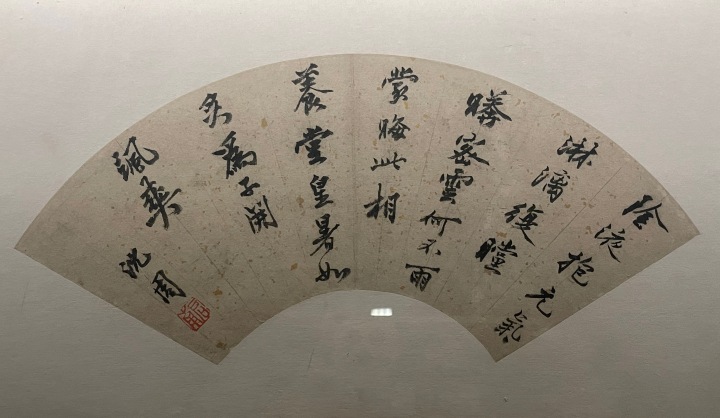 陰液抱元氣
淋漓復
密雲何不雨
晦此相
養堂皇暑如
炙為子開
颯爽
沈周